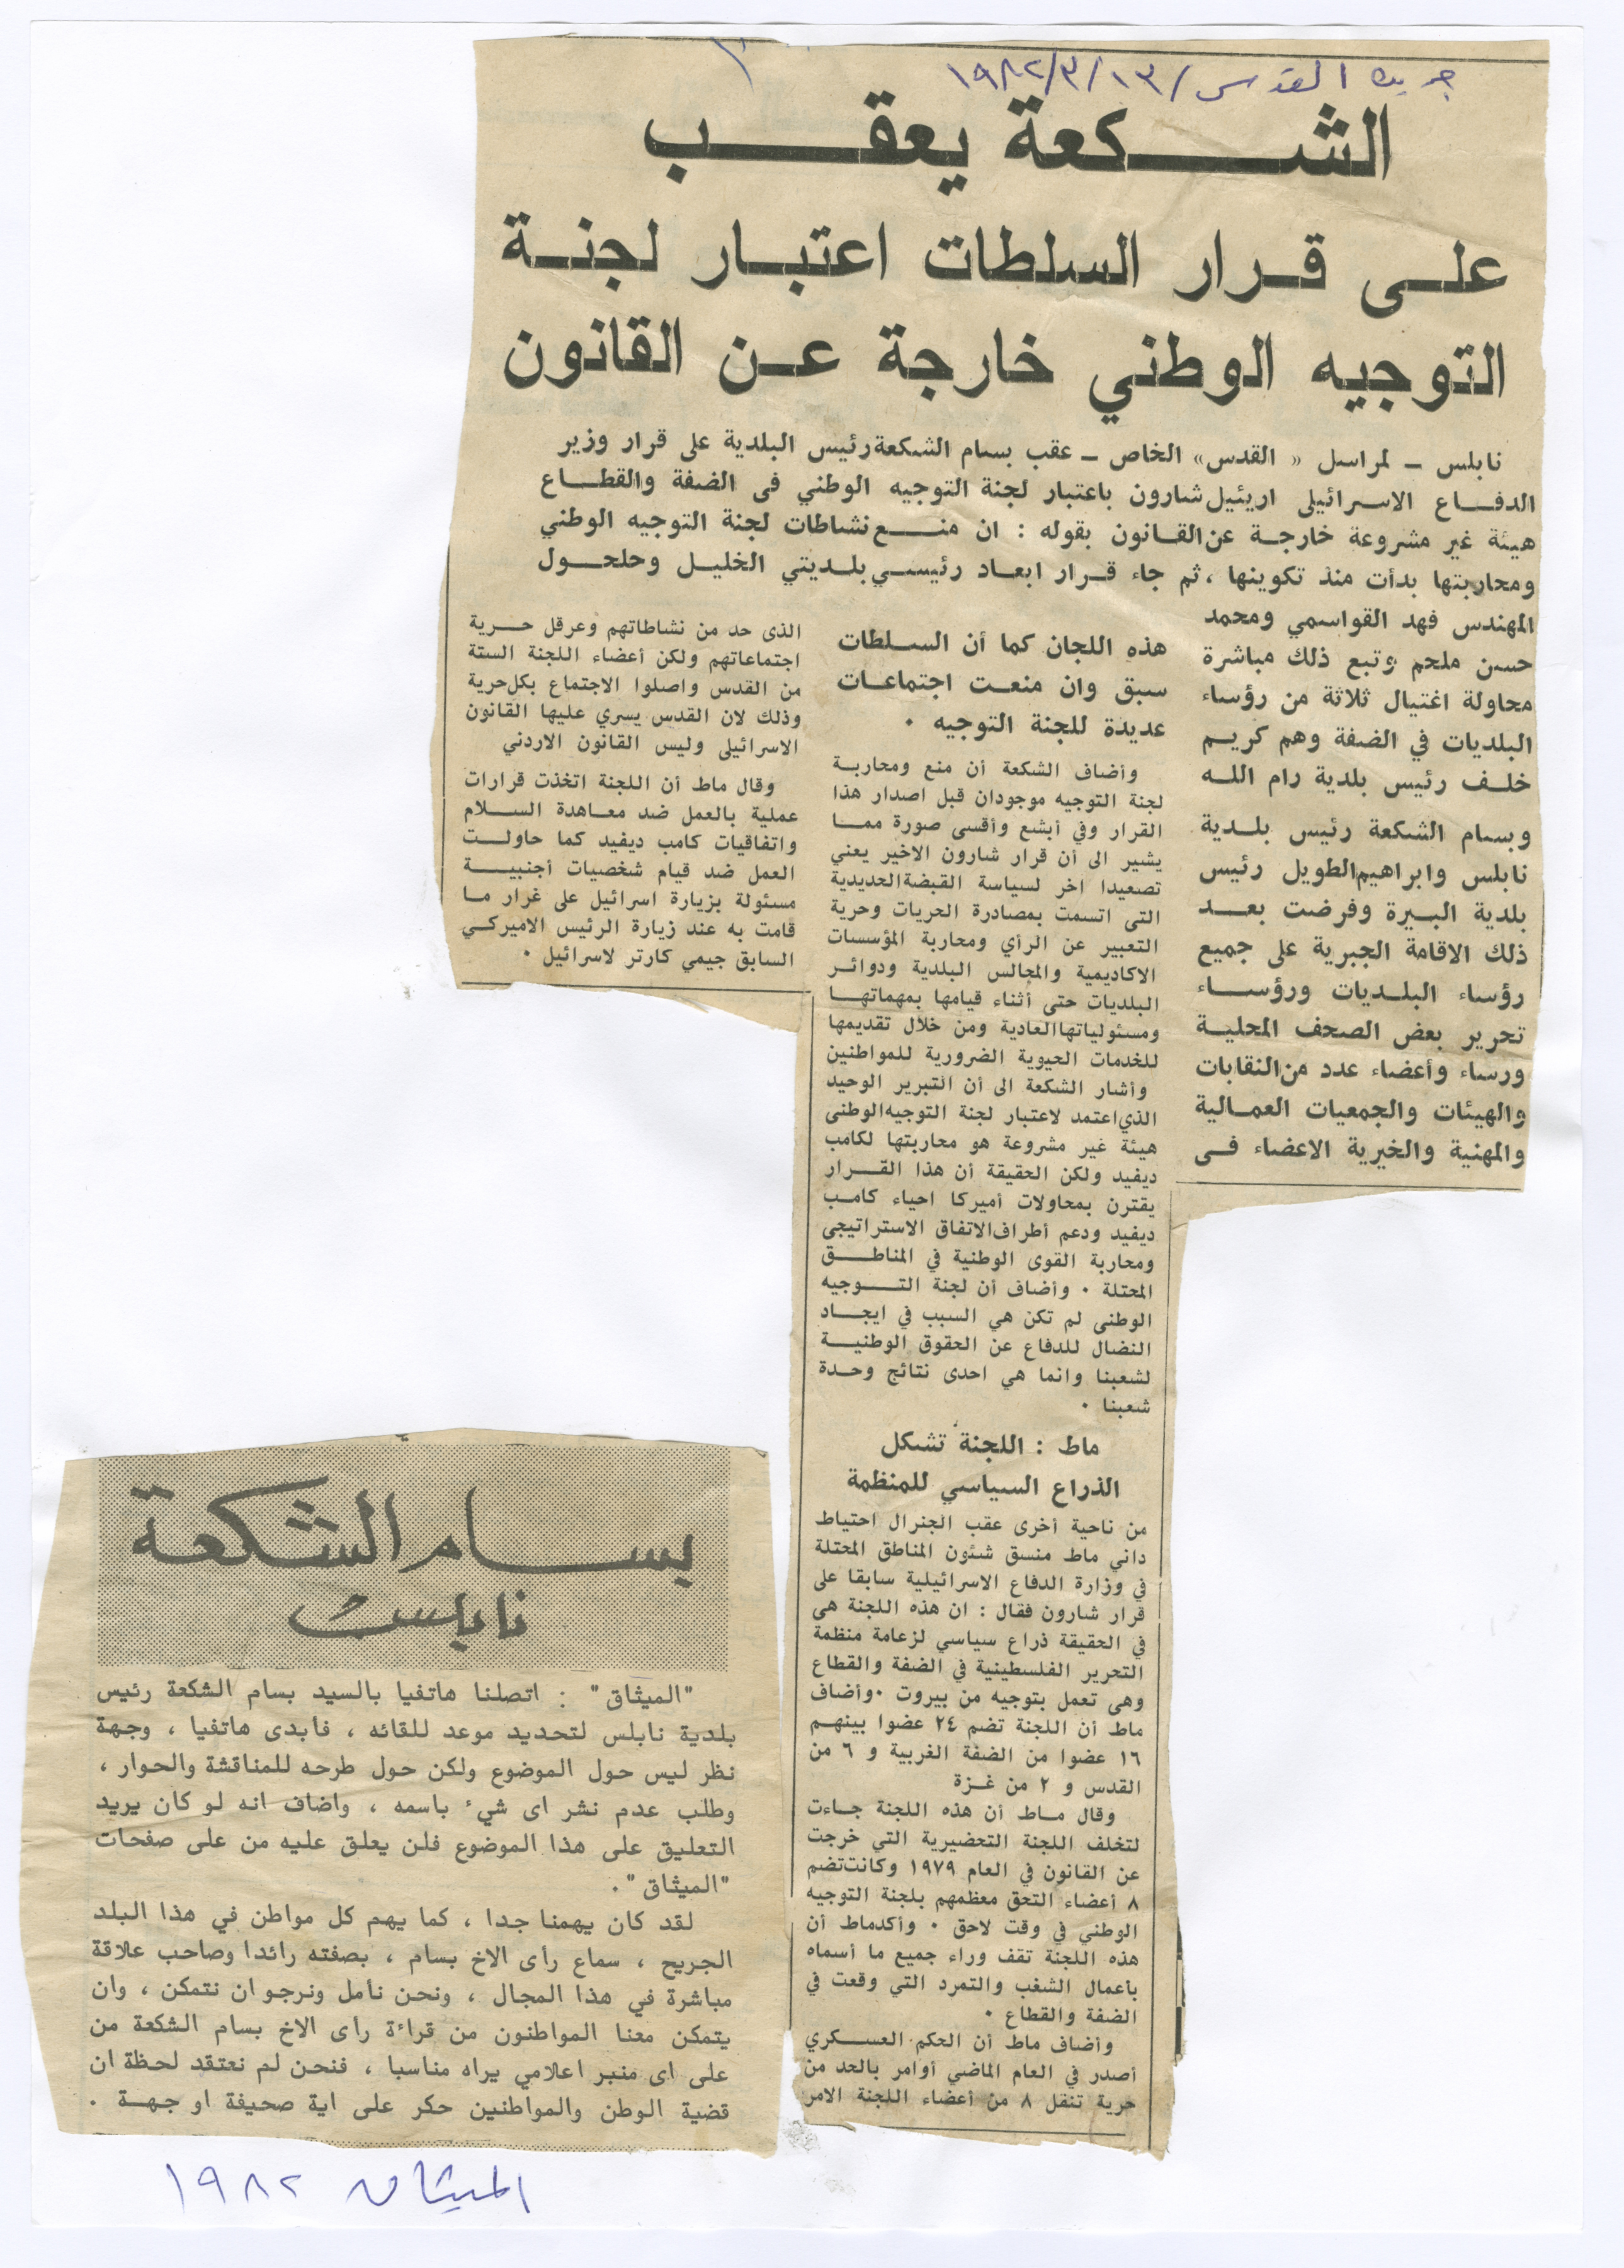 جريدة القدس / ١٣/٣/١٩٨٢
الشكعة يعقب
على قرار السلطات اعتبار لجنة
التوجيه الوطني خارجة عن القانون
نابلس – لمراسل « القدس» الخاص – عقب بسام الشكعة رئيس البلدية على قرار وزير
الدفاع الاسرائيلى اريئيل شارون باعتبار لجنة التوجيه الوطني فى الضفة والقطاع
هيئة غير مشروعة خارجة عن القانون بقوله : ان منع نشاطات لجنة التوجيه الوطني
ومحاربتها بدأت منذ تكوينها ، ثم جاء قرار ابعاد رئيسي بلديتي الخليل وحلحول
المهندس فهد القواسمي ومحمد
حسن ملحم وتبع ذلك مباشرة
محاولة اغتيال ثلاثة من رؤساء
البلديات في الضفة وهم كريم
خلف رئيس بلدية رام الله
وبسام الشكعة رئيس بلدية
نابلس وابراهيم الطويل رئيس
بلدية البيرة وفرضت بعد
ذلك الاقامة الجبرية على جميع
رؤساء البلديات ورؤساء
تحرير بعض الصحف المحلية
ورساء وأعضاء عدد من النقابات
والهيئات والجمعيات العمالية
والمهنية والخيرية الاعضاء فى
هذه اللجان كما أن السلطات
سبق وان منعت اجتماعات
عديدة للجنة التوجيه .
وأضاف الشكعة أن منع ومحاربة
لجنة التوجيه موجودان قبل اصدار هذا
القرار وفي أبشع وأقسى صورة مما
يشير الى أن قرار شارون الاخير يعني
تصعيدا اخر لسياسة القبضة الحديدية
التى اتسمت بمصادرة الحريات وحرية
التعبير عن الرأي ومحاربة المؤسسات
الاكاديمية والمجالس البلدية ودوائر
البلديات حتى أثناء قيامها بمهماتها
ومسئولياتها العادية ومن خلال تقديمها
للخدمات الحيوية الضرورية للمواطنين
وأشار الشكعة الى أن التبرير الوحيد
الذي اعتمد لاعتبار لجنة التوجيه الوطنى
هيئة غير مشروعة هو محاربتها لكامب
ديفيد ولكن الحقيقة أن هذا القرار
يقترن بمحاولات أميركا احياء كامب
ديفيد ودعم أطراف الاتفاق الاستراتيجى
ومحاربة القوى الوطنية في المناطق
المحتلة . وأضاف أن لجنة التوجيه
الوطنى لم تكن هي السبب في ايجاد
النضال للدفاع عن الحقوق الوطنية
لشعبنا وانما هي احدى نتائج وحدة
شعبنا .
ماط : اللجنة تشكل
الذراع السياسي للمنظمة
من ناحية أخرى عقب الجنرال احتياط
داني ماط منسق شئون المناطق المحتلة
في وزارة الدفاع الاسرائيلية سابقا على
قرار شارون فقال : ان هذه اللجنة هى
في الحقيقة ذراع سياسي لزعامة منظمة
التحرير الفلسطينية في الضفة والقطاع
وهى تعمل بتوجيه من بيروت .وأضاف
ماط أن اللجنة تضم ٢٤ عضوا بينهم
١٦ عضوا من الضفة الغربية و ٦ من
القدس و ٢ من غزة
وقال ماط أن هذه اللجنة جاءت
لتخلف اللجنة التحضيرية التي خرجت
عن القانون في العام ١٩٧٩ وكانت تضم
٨ أعضاء التحق معظمهم بلجنة التوجيه
الوطني في وقت لاحق . وأكد ماط أن
هذه اللجنة تقف وراء جميع ما أسماه
بأعمال الشغب والتمرد التي وقعت في
الضفة والقطاع .
وأضاف ماط أن الحكم العسكري
أصدر في العام الماضي أوامر بالحد من
حرية تنقل ٨ من أعضاء اللجنة الامر
الذى حد من نشاطاتهم وعرقل حرية
اجتماعاتهم ولكن أعضاء اللجنة الستة
من القدس واصلوا الاجتماع بكل حرية
وذلك لان القدس يسري عليها القانون
الاسرائيلى وليس القانون الاردني
وقال ماط أن اللجنة اتخذت قرارات
عملية بالعمل ضد معاهدة السلام
واتفاقيات كامب ديفيد كما حاولت
العمل ضد قيام شخصيات أجنبية
مسئولة بزيارة اسرائيل على غرار ما
قامت به عند زيارة الرئيس الاميركي
السابق جيمي كارتر لاسرائيل .
بسام الشكعة
نابلس
"الميثاق" : اتصلنا هاتفيا بالسيد بسام الشكعة رئيس
بلدية نابلس لتحديد موعد للقائه ، فأبدى هاتفيا ، وجهة
نظر ليس حول الموضوع ولكن حول طرحه للمناقشة والحوار ،
وطلب عدم نشر اى شيء باسمه ، واضاف انه لو كان يريد
التعليق على هذا الموضوع فلن يعلق عليه من على صفحات
"الميثاق" .
لقد كان يهمنا جدا ، كما يهم كل مواطن في هذا البلد
الجريح ، سماع رأى الاخ بسام ، بصفته رائدا وصاحب علاقة
مباشرة في هذا المجال ، ونحن نأمل ونرجو ان نتمكن ، وان
يتمكن معنا المواطنون من قراءة رأى الاخ بسام الشكعة من
على اى منبر اعلامي يراه مناسبا ، فنحن لم نعتقد لحظة ان
قضية الوطن والمواطنين حكر على اية صحيفة او جهة .
الميثاق ١٩٨٢